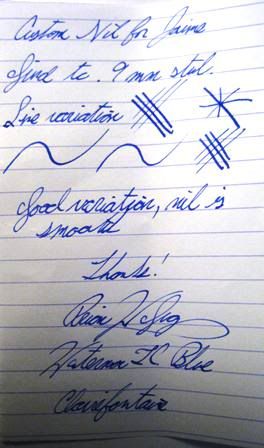 Custom Nib for Jaime
Grind to .9 mm stub.
Line variation
Good variation, nib is
smooth
Thanks!
Waterman FC Blue
Clairefontaine